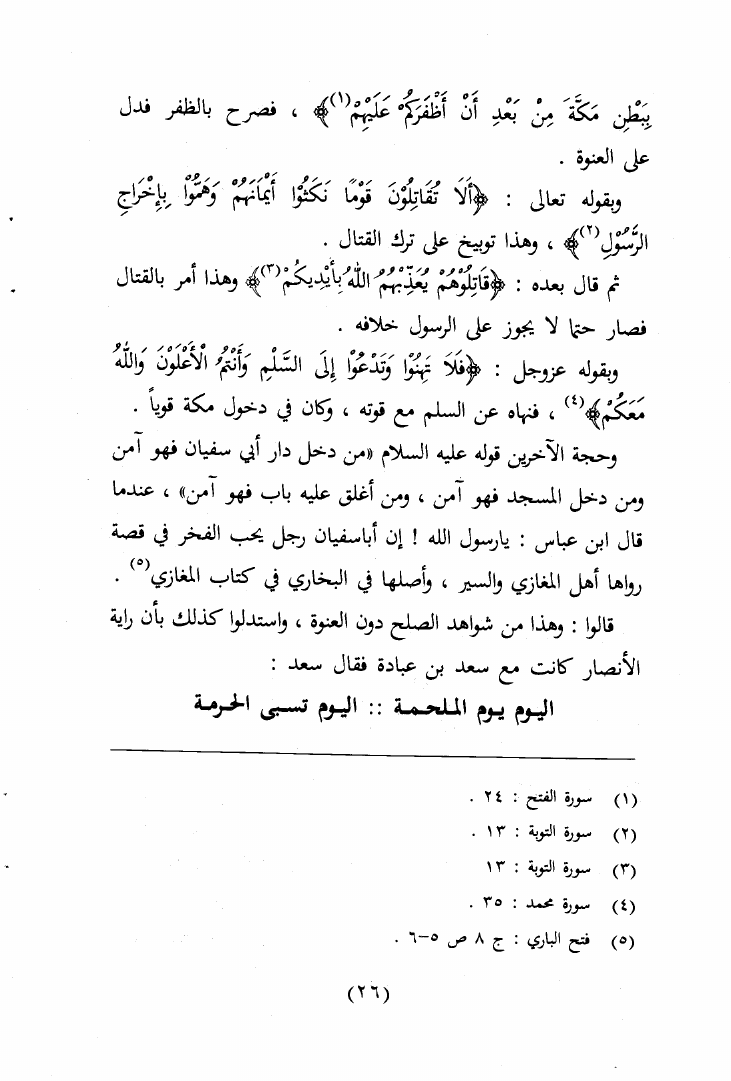 بِبَطْنِ مَكَّةَ مِنْ بَعْدِ أَنْ أَظْفَرَكُمْ عَلَيْهِمْ(١)﴾ ، فصرح بالظفر فدل
على العنوة .
وبقوله تعالى : ﴿أَلَا تُقَاتِلُوْنَ قَوْمًا نَكَثُوْا أَيْمَانَهُمْ وَهَمُّوْا بِإِخْرَاجِ
الرَّسُوْلِ(٢)﴾ ، وهذا توبيخ على ترك القتال .
ثم قال بعده : ﴿قَاتِلُوْهُمْ يُعَذِّبْهُمُ اللهُ بِأَيْدِيكُمْ(٣)﴾ وهذا أمر بالقتال
فصار حتما لا يجوز على الرسول خلافه .
وبقوله عزوجل : ﴿فَلَا تَهِنُوْا وَتَدْعُوْا إِلَى السَّلْمِ وَأَنْتُمُ الْأَعْلَوْنَ وَاللهُ
مَعَكُمْ﴾(٤) ، فنهاه عن السلم مع قوته ، وكان في دخول مكة قوياً .
وحجة الآخرين قوله عليه السلام «من دخل دار أبي سفيان فهو آمن
ومن دخل المسجد فهو آمن ، ومن أغلق عليه باب فهو آمن» ، عندما
قال ابن عباس : يارسول الله ! إن أباسفيان رجل يحب الفخر في قصة
رواها أهل المغازي والسير ، وأصلها في البخاري في كتاب المغازي(٥) .
قالوا : وهذا من شواهد الصلح دون العنوة ، واستدلوا كذلك بأن راية
الأنصار كانت مع سعد بن عبادة فقال سعد :
اليوم يوم الملحمة :: اليوم تسبى الحرمة
(١) سورة الفتح : ٢٤ .
(٢) سورة التوبة : ١٣ .
(٣) سورة التوبة : ١٣
(٤) سورة محمد : ٣٥ .
(٥) فتح الباري : ج ٨ ص ٥-٦ .
(٢٦)